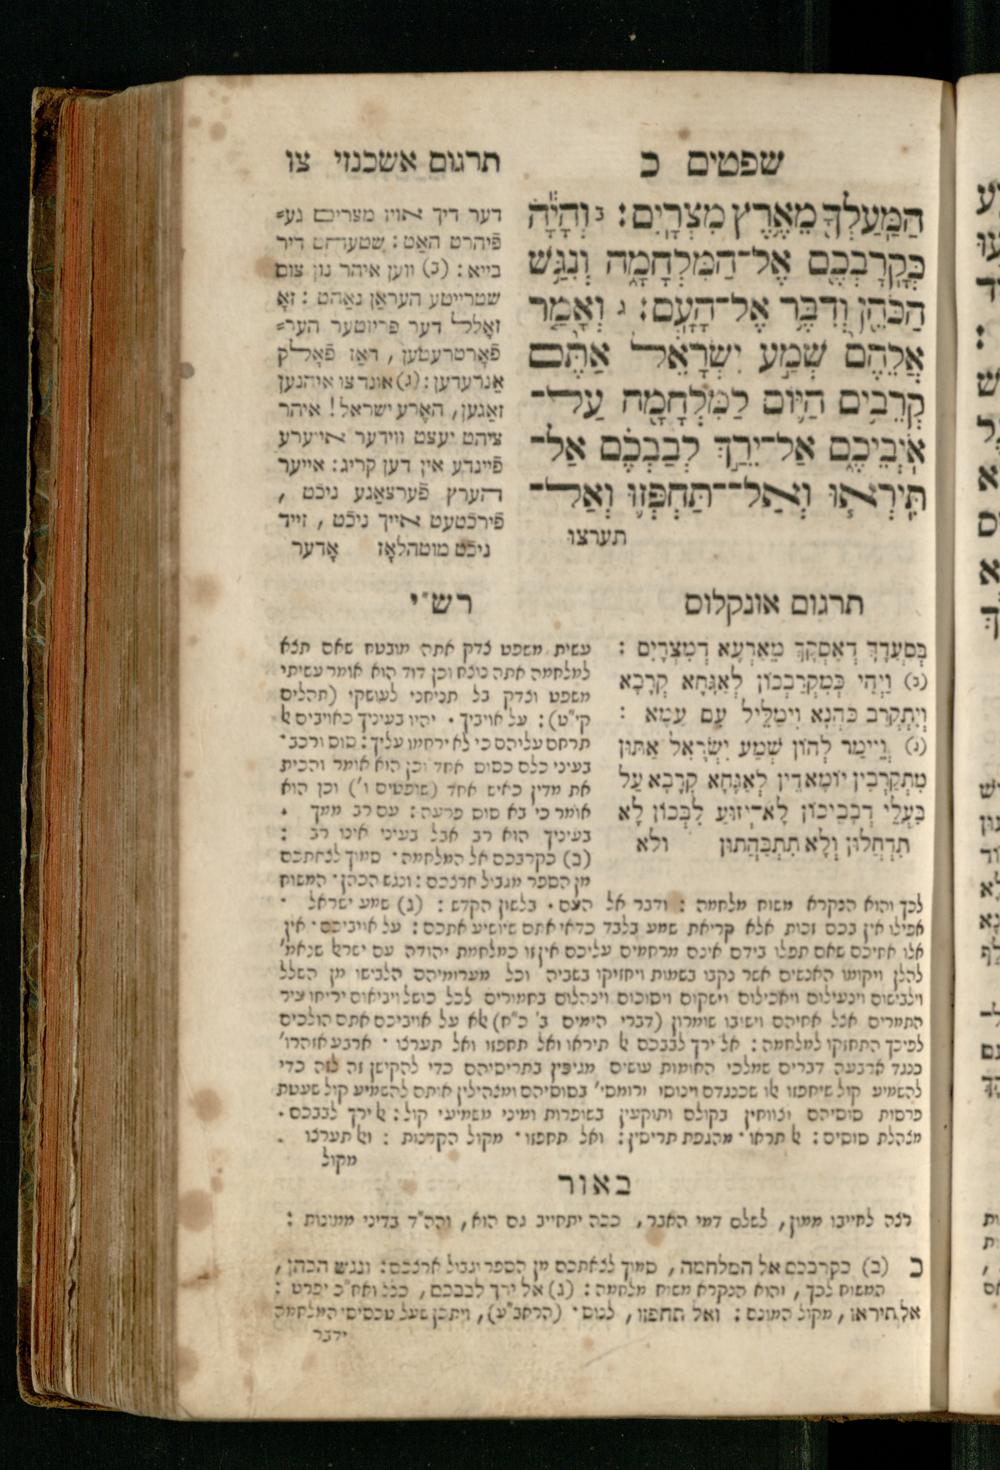 שפטים כ
תרגום אשכנזי צו
הַמַּעַלְךָ מֵאֶרֶץ מִצְרָיִם׃ ב וְהָיָה
כְּקָרָבְכֶם אֶל־הַמִּלְחָמָה וְנִגַּשׁ
הַכֹּהֵן וְדִבֶּר אֶל־הָעָם׃ ג וְאָמַר
אֲלֵהֶם שְׁמַע יִשְׂרָאֵל אַתֶּם
קְרֵבִים הַיּוֹם לַמִּלְחָמָה עַל־
אֹיְבֵיכֶם אַל־יֵרַךְ לְבַבְכֶם אַל־
תִּירְאוּ וְאַל־תַּחְפְּזוּ וְאַל־
תערצו
דער דיך אויז מצרים גע=
פֿיהרט האַט : שטעהט דיר
בייא : (ב) ווען איהר נון צום
שטרייטע העראַן נאַהט : זאָ
זאָלל דער פריזטער הער=
פֿאָרטרעטען , דאַז פֿאָלק
אַנרעדען : (ג) אונד צו איהנען
זאַגען , האָרע ישראל ! איהר
ציהט יעצט ווידער אייערע
פֿיינדע אין דען קריג : אייער
הערץ פֿערצאַגע ניכֿט ,
פֿירכֿטעט אייך ניכֿט , זייד
ניכֿט מוטהלאָז אָדער
תרגום אונקלוס
בְּסַעֲדָךְ דְאַסְקָךְ מֵאַרְעָא דְמִצְרָיִם :
(ב) וִיהֵי כְּמִקְרַבְכוֹן לְאַגָּחָא קְרָבָא
וְיִתְקְרֵב כַּהֲנָא וִימַלֵּיל עִם עַמָּא :
(ג) וְיֵימַר לְהוֹן שְׁמַע יִשְׂרָאֵל אַתּוּן
מִתְקָרְבִין יוֹמָא דֵין לְאַגָּחָא קְרָבָא עַל
בַּעֲלֵי דְבָבֵיכוֹן לָא־יְזוּעַ לִבְּכוֹן לָא
תִדְחֲלוּן וְלָא תִתְבַּהֲתוּן ולא
רש״י
עשית משפט צדק אתה מובטח שאם תצא
למלחמה אתה נוצח וכן דוד הוא אומר עשיתי
משפט וצדק בל תניחני לעושקי (תהלים
קי"ט) : על אויביך · יהיו בעיניך כאויבים אל
תרחם עליהם כי לא ירחמו עליך : סוס ורכב ·
בעיני כלם כסוס אחד וכן הוא אומר והכית
את מדין כאיש אחד (שופטים ו') וכן הוא
אומר כי בא סוס פרעה : עם רב ממך .
בעיניך הוא רב אבל בעיני אינו רב :
(ב) כקרבכם אל המלחמה · סמוך לצאתכם
מן הספר מגבול ארצכם : ונגש הכהן · המשוח
לכך והוא הנקרא משוח מלחמה : ודבר אל העם · בלשון הקדש : (ג) שמע ישראל ·
אפילו אין בכם זכות אלא קריאת שמע בלבד כדאי אתם שיושיע אתכם : על אויביכם · אין
אלו אחיכם שאם תפלו בידם אינם מרחמים עליכם אין זו כמלחמת יהודה עם ישראל שנאמ'
להלן ויקומו האנשים אשר נקבו בשמות ויחזיקו בשביה וכל מערומיהם הלבישו מן השלל
וילבישום וינעילום ויאכילום וישקום ויסוכום וינהלום בחמורים לכל כושל ויביאום יריחו עיר
התמרים אצל אחיהם וישובו שומרון (דברי הימים ב' כ"ח) אלא על אויביכם אתם הולכים
לפיכך התחזקו למלחמה : אל ירך לבבכם אל תיראו ואל תחפזו ואל תערצו · ארבע אזהרו'
כנגד ארבעה דברים שמלכי האומות עושים מגיפין בתריסיהם כדי להקישן זה לזה כדי
להשמיע קול שיחפזו אלו שכנגדם וינוסו ורומסי' בסוסיהם ומצהילין אותם להשמיע קול שעטת
פרסות סוסיהם וצווחין בקולם ותוקעין בשופרות ומיני משמיעי קול : אל ירך לבבכם .
מצהלת סוסים : אל תראו · מהגפת תריסין : ואל תחפזו · מקול הקרנות : ואל תערצו .
מקול
באור
רצה לחייבו ממון, לשלם דמי האבר, ככה יתחייב גם הוא, והה"ד בדיני ממונות :
כ (ב) כקרבכם אל המלחמה, סמוך לצאתכם מן הספר וגבול ארצכם : ונגש הכהן,
המשוח לכך, והוא הנקרא משוח מלחמה : (ג) אל ירך לבבכם, כלל ואח"כ יפרט :
אל תיראו, מקול המונם : ואל תחפזו, לנוס · (הראב"ע), ויתכן שעל טכסיסי המלחמה
ידבר